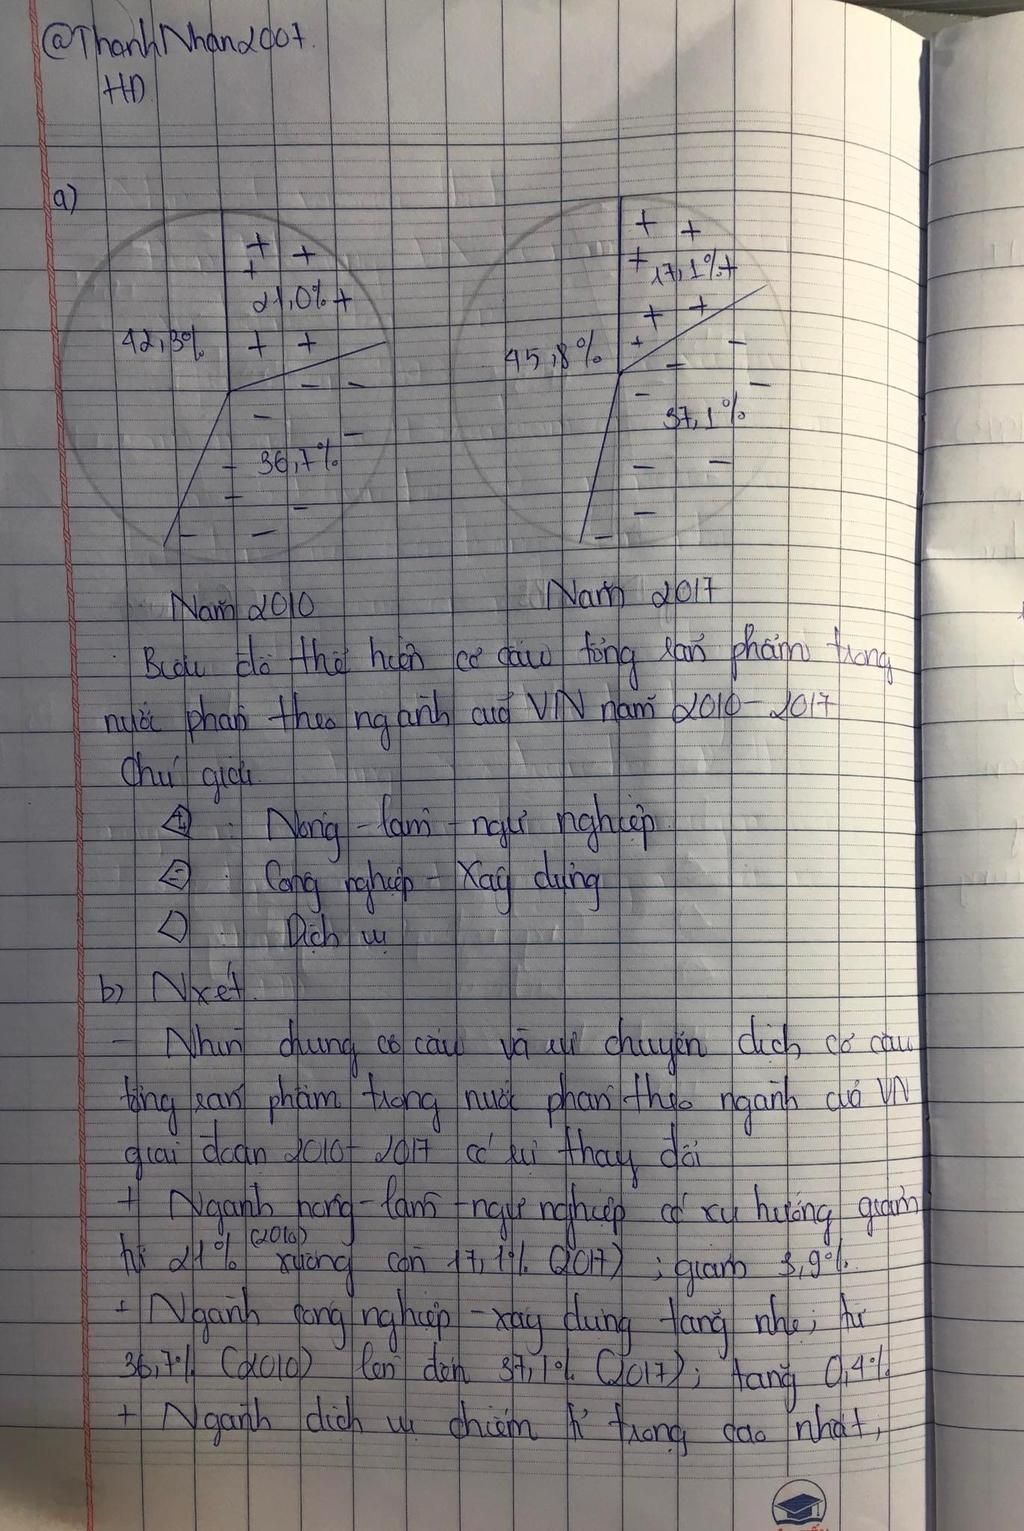 @ThanhNhan2007.
HD
a)
42,3%
21,0%
36,7%
45,8%
17,1%
37,1%
Năm 2010
Năm 2017
Biểu đồ thể hiện cơ cấu tổng sản phẩm trong
nước phân theo ngành của VN năm 2010-2017
Chú giải
: Nông - lâm - ngư nghiệp
: Công nghiệp - Xây dựng
: Dịch vụ
b) Nxét.
- Nhìn chung cơ cấu và sự chuyển dịch cơ cấu
tổng sản phẩm trong nước phân theo ngành của VN
giai đoạn 2010-2017 có sự thay đổi
+ Ngành nông-lâm-ngư nghiệp có xu hướng giảm
từ 21% (2010) xuống còn 17,1% (2017); giảm 3,9%.
+ Ngành công nghiệp-xây dựng tăng nhẹ; từ
36,7% (2010) lên đến 37,1% (2017); tăng 0,4%
+ Ngành dịch vụ chiếm tỉ trọng cao nhất,